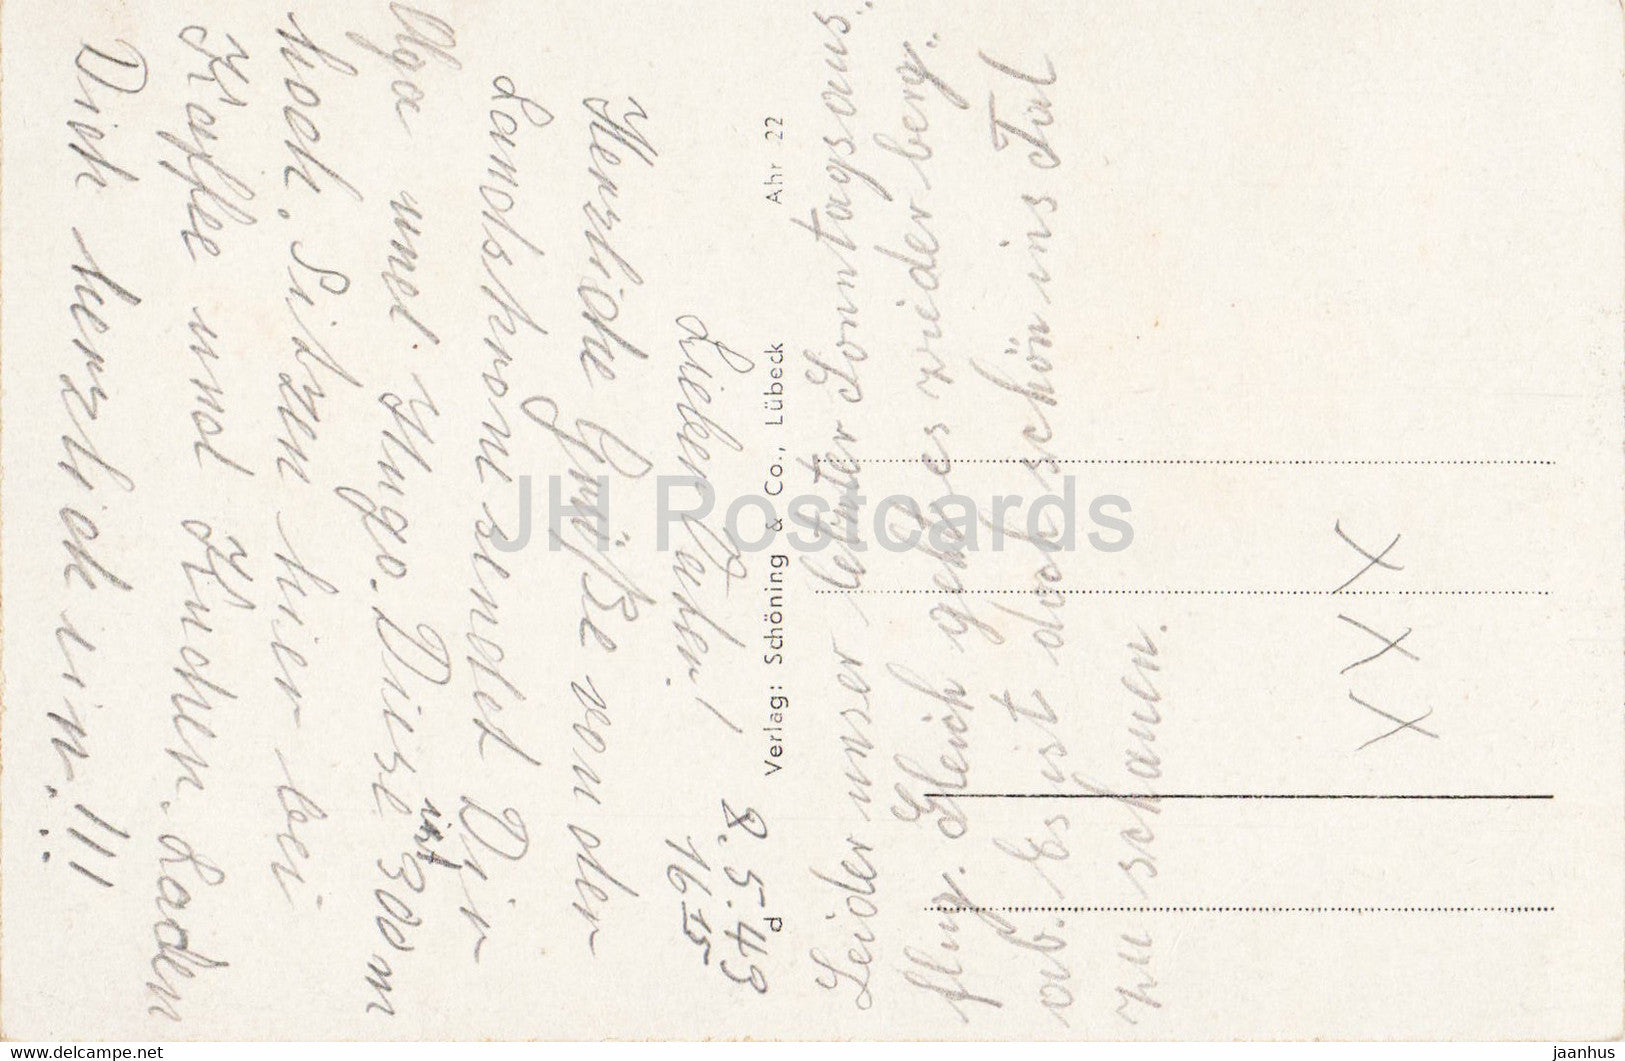 8.5.49
16 15
Lieber Vater!
Herzliche Grüße von der
Landskrone sendet Dir
Olga und Hugo. Diese ist 300 m
hoch. Sitzen hier bei
Kaffee und Kuchen. Laden
Dich herzlich ein.!!!
d Verlag: Schöning & Co., Lübeck Ahr 22
Leider unser letzter Sonntagsaus-
flug. Gleich geht es wieder berg-
ab. Es ist doch schön ins Tal
zu schauen.
XXX
JH Postcards
www.delcampe.net
jaanhus